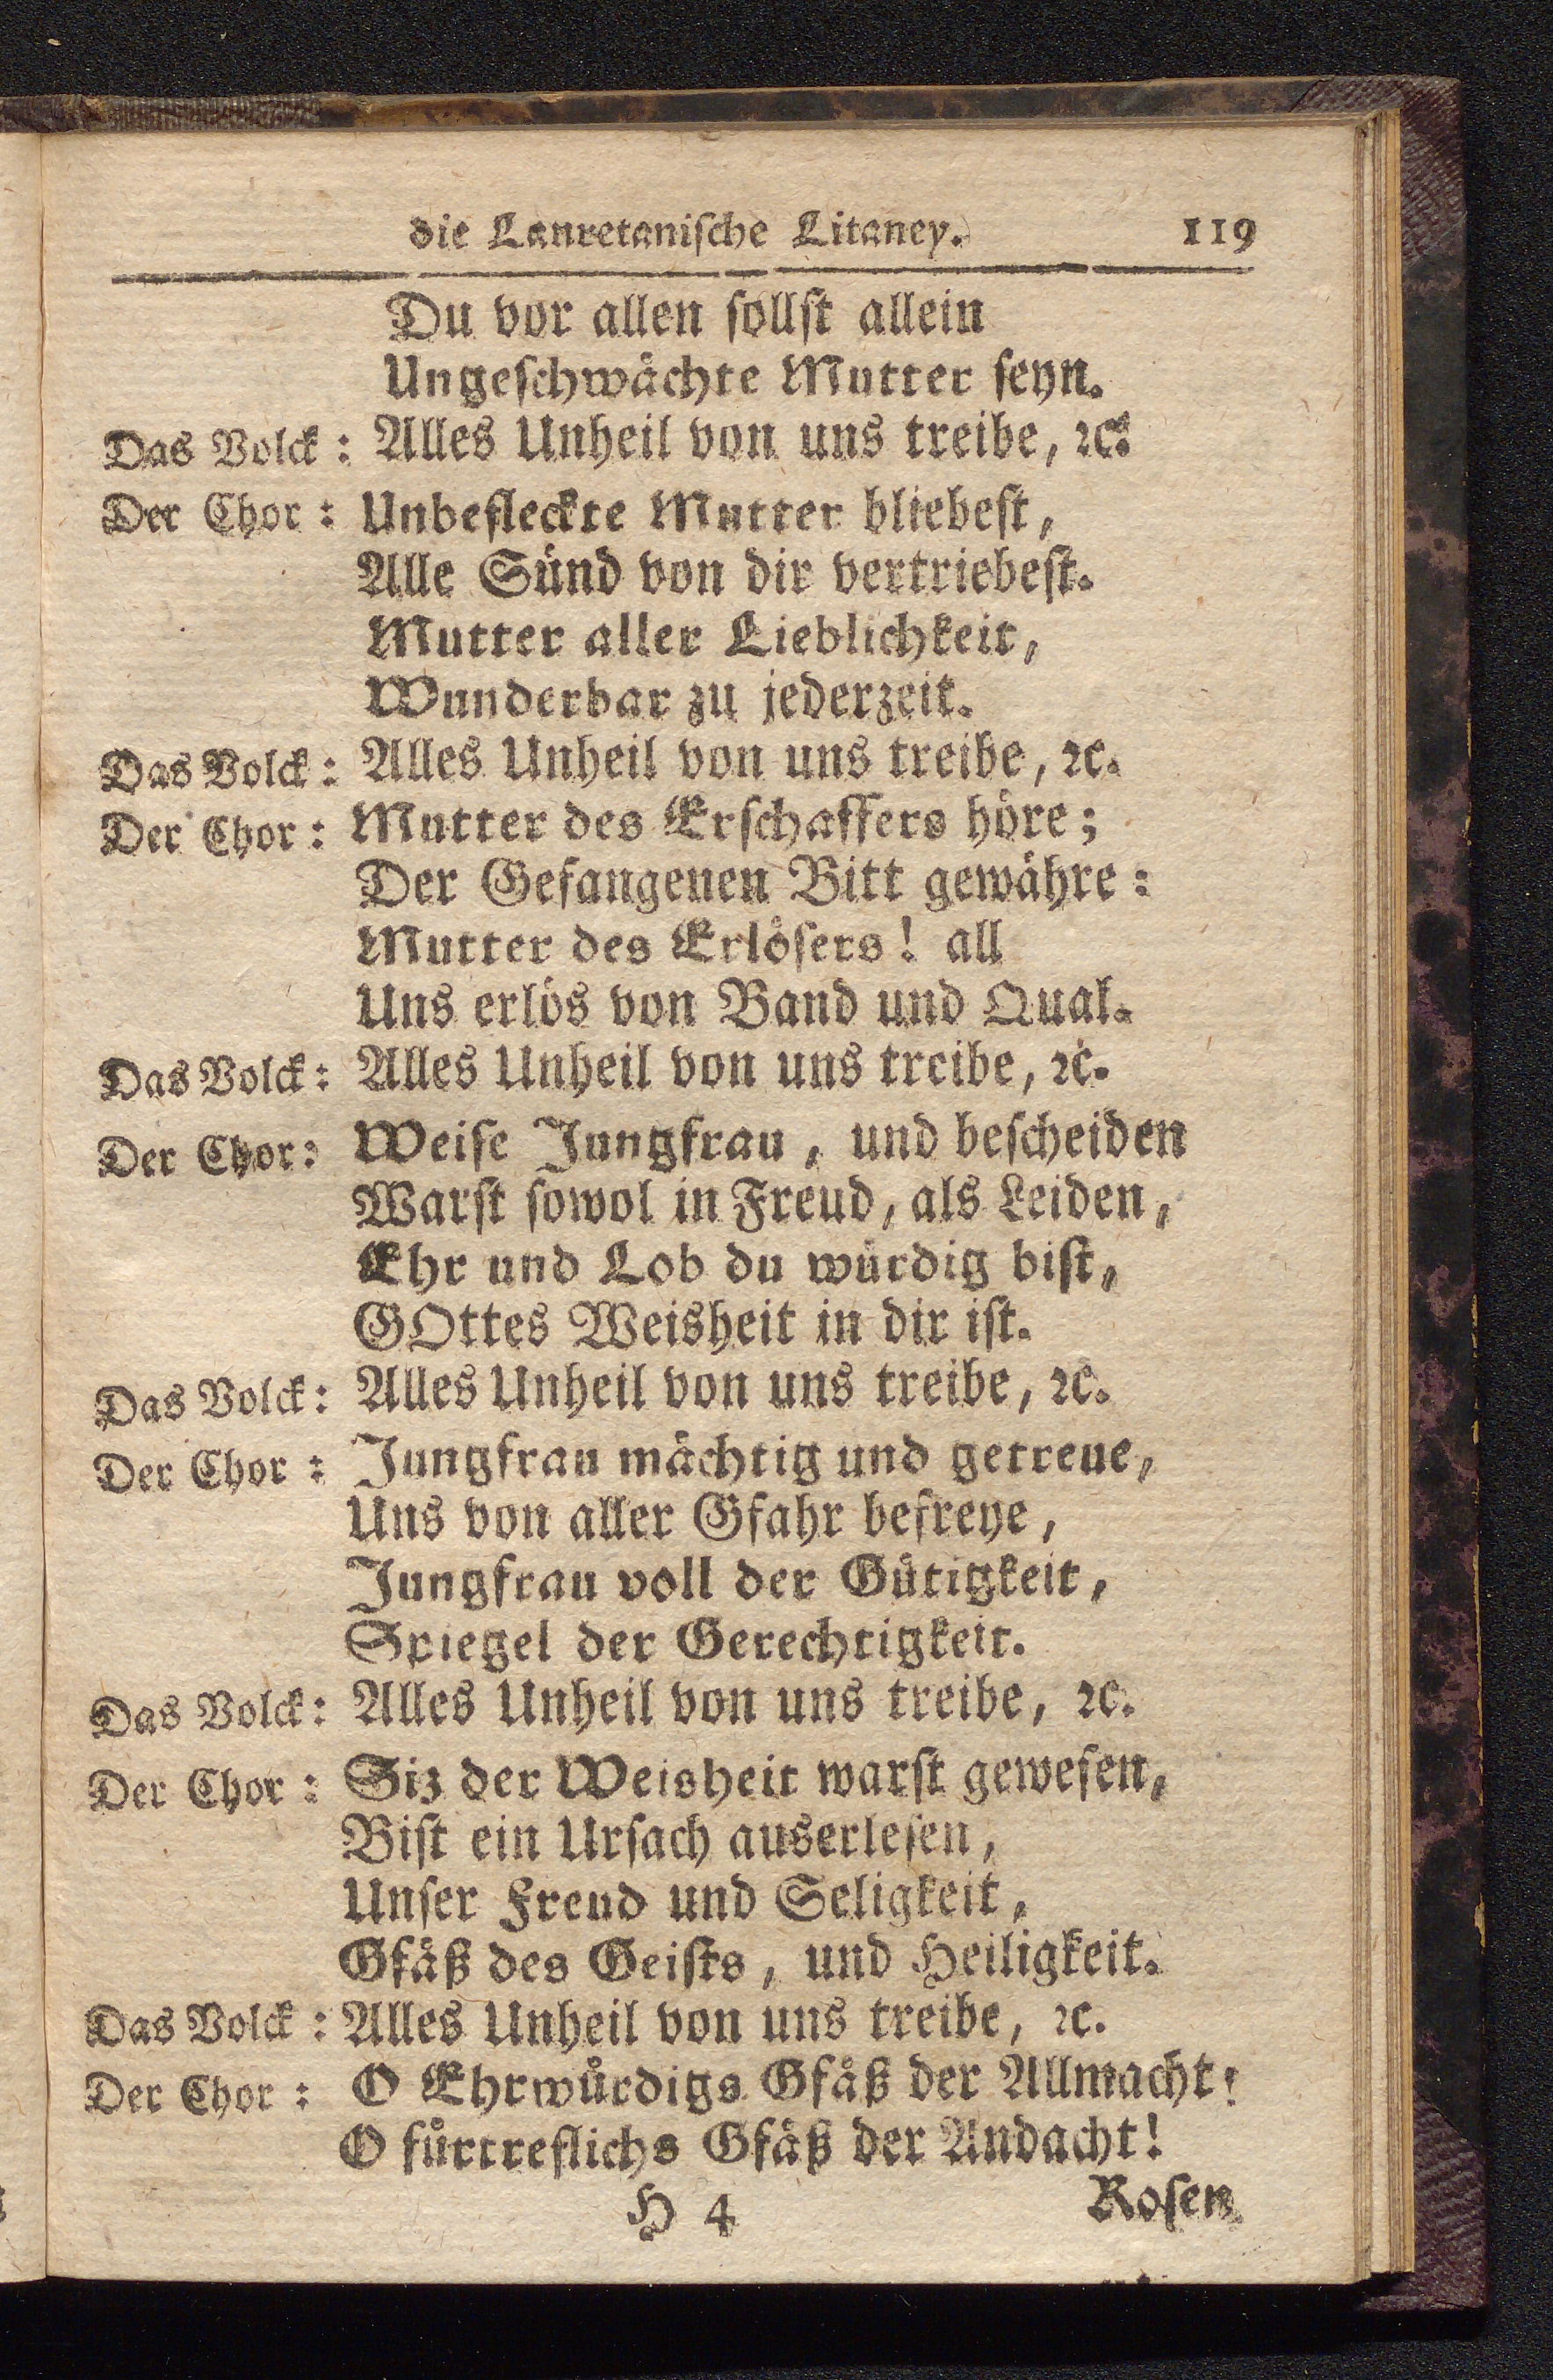 die Lauretanische Litaney. 119
Du vor allen sollst allein
Ungeschwächte Mutter seyn.
Das Volck: Alles Unheil von uns treibe, ꝛc.
Der Chor: Unbefleckte Mutter bliebest,
Alle Sünd von dir vertriebest.
Mutter aller Lieblichkeit,
Wunderbar zu jederzeit.
Das Volck: Alles Unheil von uns treibe, ꝛc.
Der Chor: Mutter des Erschaffers höre;
Der Gefangenen Bitt gewähre:
Mutter des Erlösers! all
Uns erlös von Band und Qual.
Das Volck: Alles Unheil von uns treibe, ꝛc.
Der Chor: Weise Jungfrau, und bescheiden
Warst sowol in Freud, als Leiden,
Ehr und Lob du würdig bist,
GOttes Weisheit in dir ist.
Das Volck: Alles Unheil von uns treibe, ꝛc.
Der Chor: Jungfrau mächtig und getreue,
Uns von aller Gfahr befreye,
Jungfrau voll der Gütigkeit,
Spiegel der Gerechtigkeit.
Das Volck: Alles Unheil von uns treibe, ꝛc.
Der Chor: Siz der Weisheit warst gewesen,
Bist ein Ursach auserlesen,
Unser Freud und Seligkeit,
Gfäß des Geists, und Heiligkeit.
Das Volck: Alles Unheil von uns treibe, ꝛc.
Der Chor: O Ehrwürdigs Gfäß der Allmacht!
O fürtreflichs Gfäß der Andacht!
H 4 Rosen